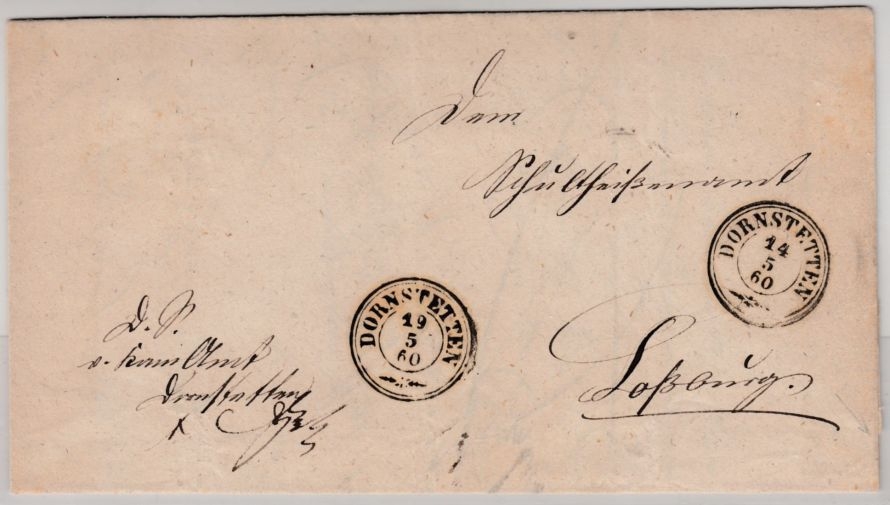 Dem
Schultheißenamt
DORNSTETTEN
14
5
60
DORNSTETTEN
19
5
60
Loßburg.
D. S.
v. Kam Amt
Dornstetten